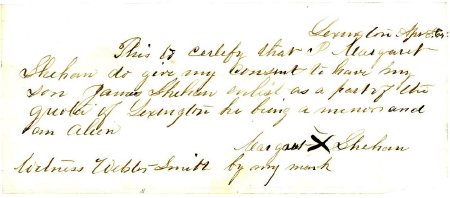 Lexington Apr 5. 64.
This to certify that I Margaret
Shehan do give my consent to have my
son James Shehan enlist as a part of the
quota of Lexington he being a minor and
an Alien
Margaret X Shehan
Witness Webber Smith by my mark